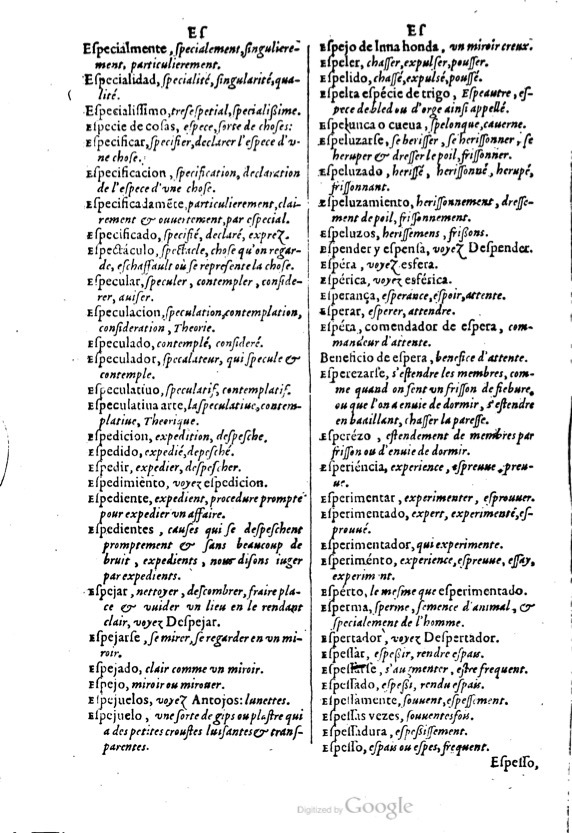 ES
Eſpecialmente, ſpecialement, ſinguliere-
ment, particulierement.
Eſpecialidad, ſpecialité, ſingularité, qua-
lité.
Eſpecialiſsimo, treſeſpetial, ſpecialißime.
Eſpecie de coſas, eſpece, ſorte de choſes:
Eſpecificar, ſpecifier, declarer l'eſpece d'v-
ne choſe.
Eſpecificacion, ſpecification, declaration
de l'eſpece d'vne choſe.
Eſpecificadamẽte, particulierement, clai-
rement & ouuertement, par eſpecial.
Eſpecificado, ſpecifié, declaré, exprez.
Eſpectáculo, ſpectacle, choſe qu'on regar-
de, eſchaffault où ſe repreſente la choſe.
Eſpecular, ſpeculer, contempler, conſide-
rer, auiſer.
Eſpeculacion, ſpeculation, contemplation,
conſideration, Theorie.
Eſpeculado, contemplé, conſideré.
Eſpeculador, ſpecalateur, qui ſpecule &
contemple.
Eſpeculatiuo, ſpeculatif, contemplatif.
Eſpeculatiua arte, la ſpeculatiue, contem-
platiue, Theorique.
Eſpedicion, expedition, deſpeſche.
Eſpedido, expedié, depeſché.
Eſpedir, expedier, deſpeſcher.
Eſpedimiẽto, voyez eſpedicion.
Eſpediente, expedient, procedure prompte
pour expedier vn affaire.
Eſpedientes, cauſes qui ſe deſpeſchent
promptement & ſans beaucoup de
bruit, expedients, nour diſons iuger
par expedients.
Eſpejar, nettoyer, deſcombrer, fraire pla-
ce & vuider vn lieu en le rendant
clair, voyez Deſpejar.
Eſpejarſe, ſe mirer, ſe regarder en vn mi-
roir.
Eſpejado, clair comme vn miroir.
Eſpejo, miroir ou mirouer.
Eſpejuelos, voyez Antojos: lunettes.
Eſpejuelo, vne ſorte de gips ou plaſtre qui
a des petites crouſtes luiſantes & tranſ-
parentes.
ES
Eſpejo de Inna honda, vn miroir creux.
Eſpeler, chaſſer, expulſer, pouſſer.
Eſpelido, chaſſé, expulsé, pouſſé.
Eſpelta eſpécie de trigo, Eſpeautre, eſ-
pece de bled ou d'orge ainſi appellé.
Eſpelunca o cueua, ſpelonque, cauerne.
Eſpeluzarſe, ſe heriſſer, ſe heriſſonner, ſe
heruper & dreſſer le poil, friſſonner.
Eſpeluzado, heriſſé, heriſſonué, herupé,
friſſonnant.
Eſpeluzamiento, heriſſonnement, dreſſe-
ment de poil, friſſonnement.
Eſpeluzos, heriſſemens, frißons.
Eſpender y eſpenſa, voyez Deſpender.
Eſpéra, voyez esfera.
Eſpérica, voyez esférica.
Eſperança, eſperance, eſpoir, attente.
Eſperar, eſperer, attendre.
Eſpéra, comendador de eſpera, com-
mandeur d'attente.
Beneficio de eſpera, benefice d'attente.
Eſperezarſe, s'eſtendre les membres, com-
me quand on ſent vn friſſon de fiebure,
ou que l'on a enuie de dormir, s'eſtendre
en baaillant, chaſſer la pareſſe.
Eſperézo, eſtendement de membres par
friſſon ou d'enuie de dormir.
Eſperiéncia, experience, eſpreuue, preu-
ue.
Eſperimentar, experimenter, eſprouuer.
Eſperimentado, expert, experimenté, eſ-
prouué.
Eſperimentador, qui experimente.
Eſperiménto, experience, eſpreuue, eſſay,
experim nt.
Eſpérto, le meſme que eſperimentado.
Eſperma, ſperme, ſemence d'animal, &
ſpecialement de l'homme.
Eſpertador, voyez Deſpertador.
Eſpeſſar, eſpeßir, rendre eſpais.
Eſpeſſarſe, s'augmenter, eſtre frequent.
Eſpeſſado, eſpeßi, rendu eſpais.
Eſpeſſamente, ſouuent, eſpeſſement.
Eſpeſſas vezes, ſouuentesfois.
Eſpeſſadura, eſpeßiſſement.
Eſpeſſo, eſpais ou eſpes, frequent.
Eſpeſſo,
Digitized by Google